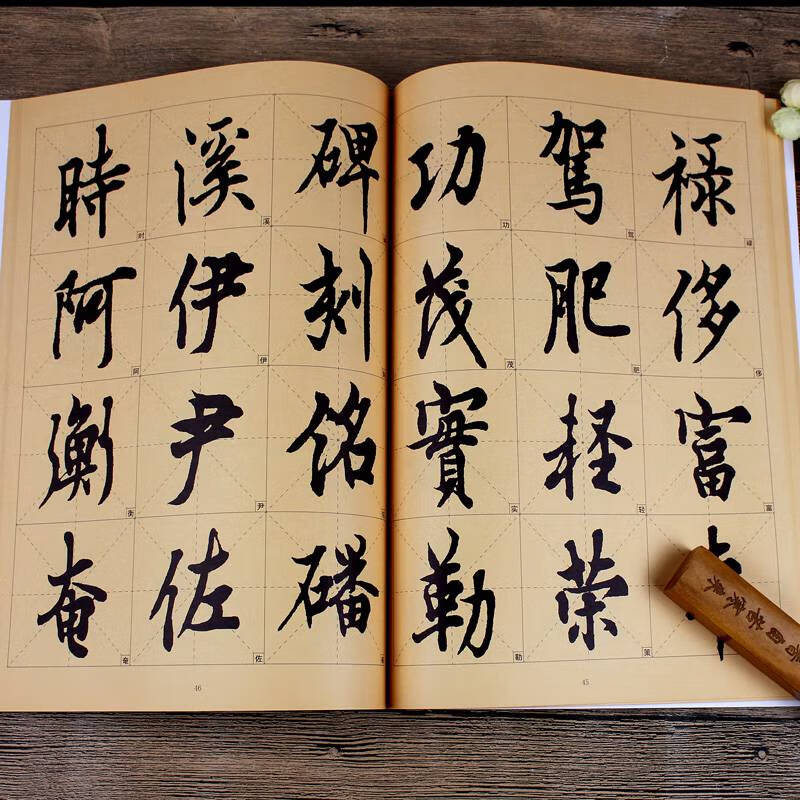 禄侈富
駕肥輕策
功茂實勒
碑刻銘磻
溪伊尹佐
時阿衡奄
禄
侈
富
肥
轻
策
功
茂
实
勒
溪
伊
尹
佐
时
阿
衡
奄
45
46